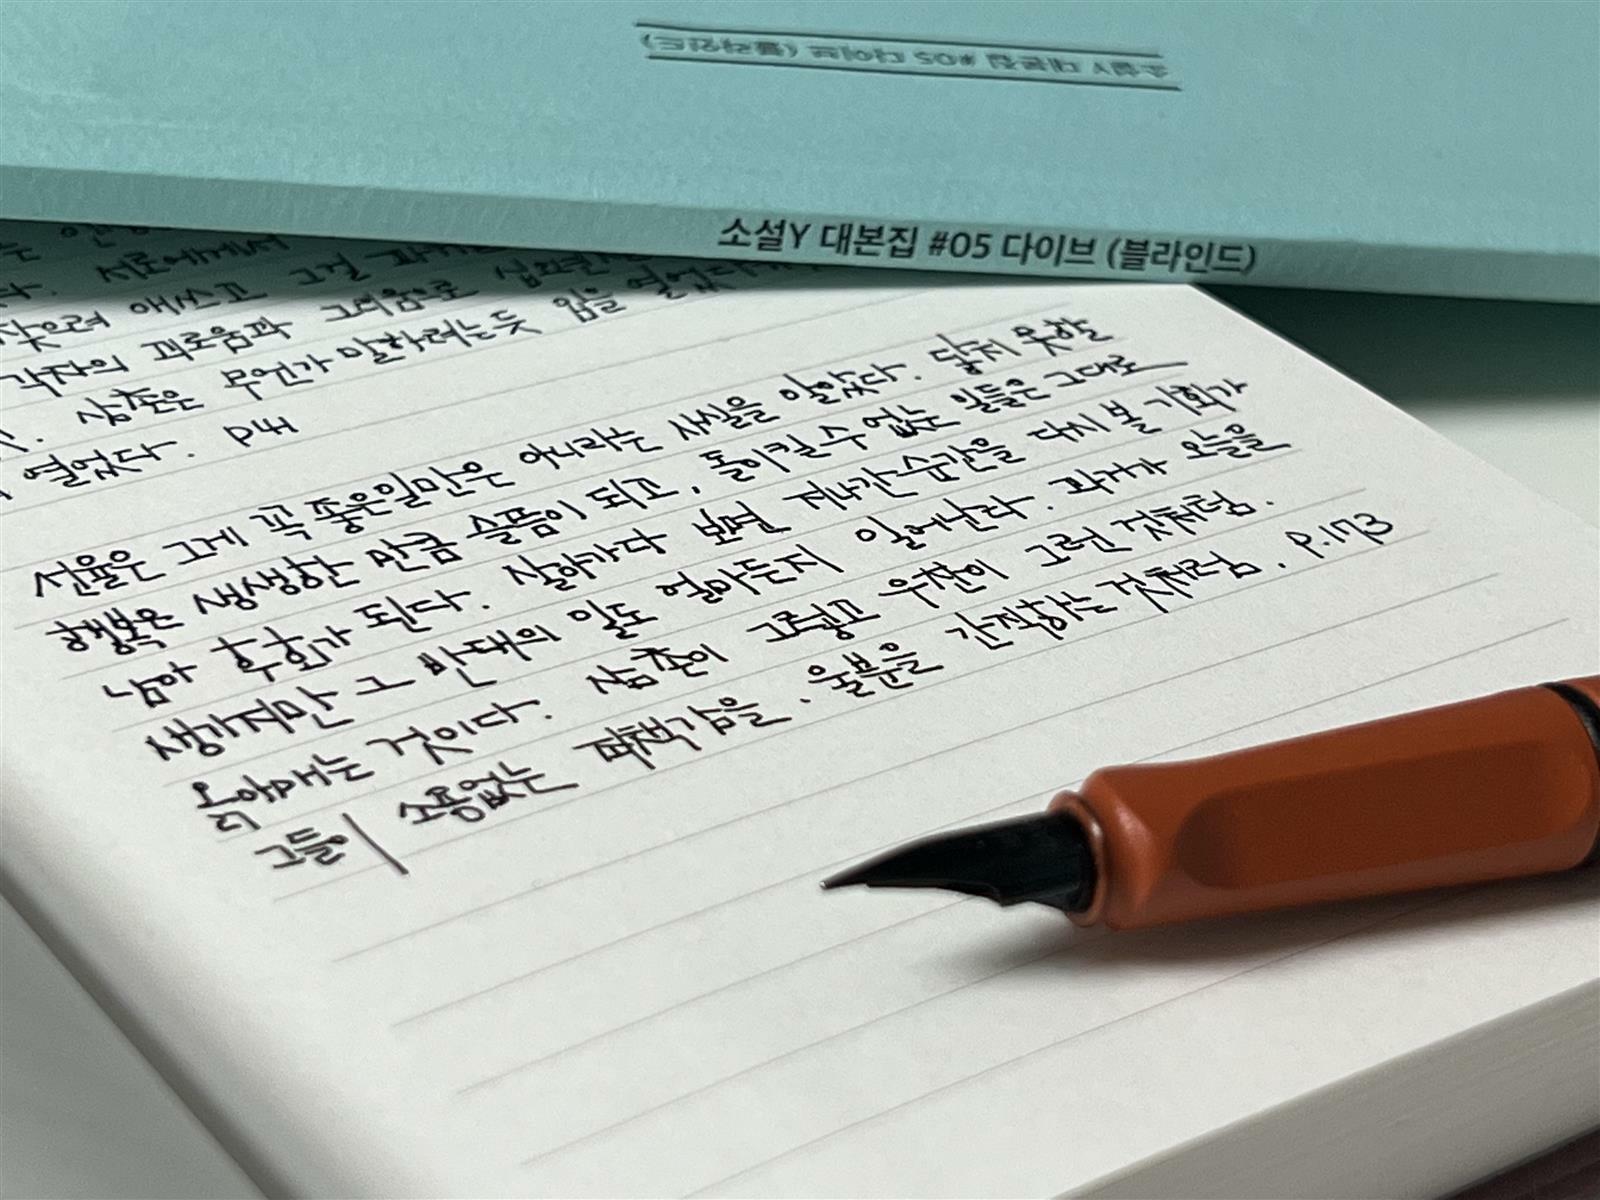 소설Y 대본집 #05 다이브 (블라인드)
소설Y 대본집 #05 다이브 (블라인드)
서로에게서
애쓰고 그걸
각자의 괴로움과 그리움으로
삼촌은 무언가 말하려는듯 입을 열었다가
열었다. P141
선율은 그게 꼭 좋은일만은 아니라는 사실을 알았다. 닿지 못할
행복은 생생한 만큼 슬픔이 되고, 돌이킬 수 없는 일들은 그대로
남아 후회가 된다. 살아가다 보면 지나간 순간을 다시 볼 기회가
생기지만 그 반대의 일도 얼마든지 일어난다. 과거가 오늘을
옭아매는 것이다. 삼촌이 그렇고 우찬이 그런 것처럼.
그들이 소용없는 죄책감을, 울분을 간직하는 것처럼. P.173